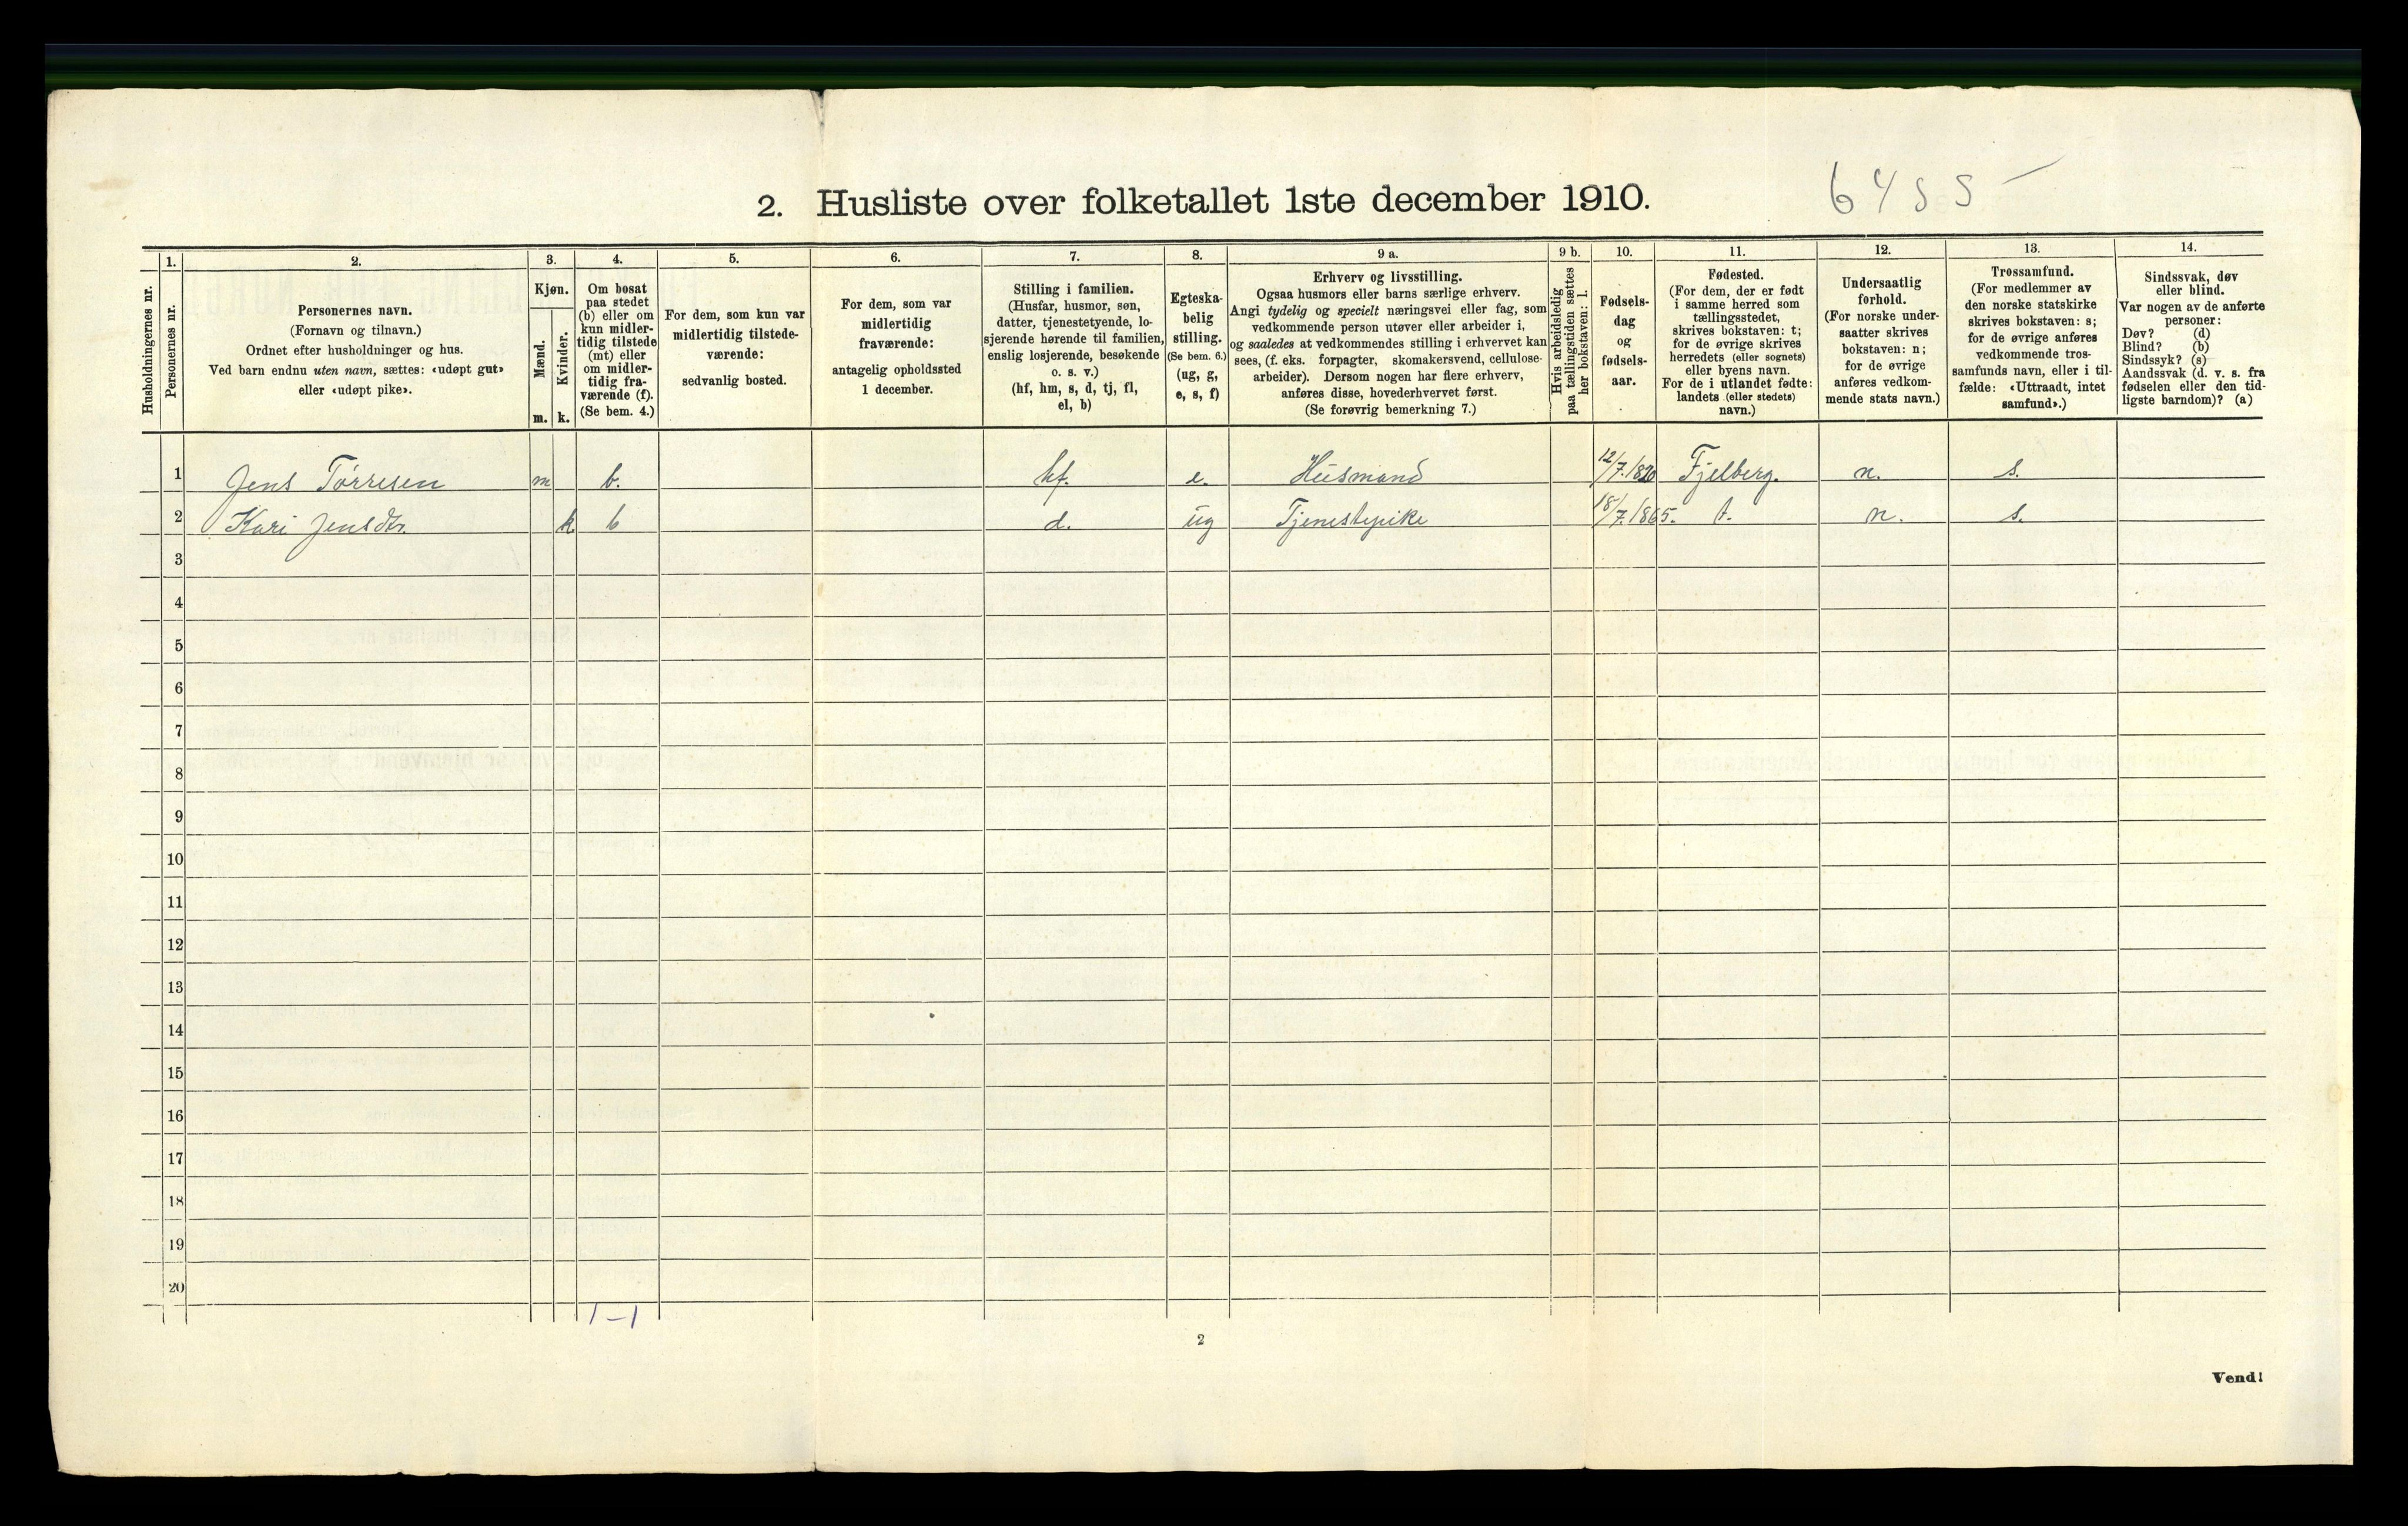 2. Husliste over folketallet 1ste december 1910.
Husholdningernes nr.
1.
Personernes nr.
2.
Personernes navn.
(Fornavn og tilnavn.)
Ordnet efter husholdninger og hus.
Ved barn endnu uten navn, sættes: «udøpt gut»
eller «udøpt pike».
3.
Kjøn.
Mænd.
Kvinder.
m. k.
4.
Om bosat
paa stedet
(b) eller om
kun midler-
tidig tilstede
(mt) eller
om midler-
tidig fra-
værende (f).
(Se bem. 4.)
5.
For dem, som kun var
midlertidig tilstede-
værende:
sedvanlig bosted.
6.
For dem, som var
midlertidig
fraværende:
antagelig opholdssted
1 december.
7.
Stilling i familien.
(Husfar, husmor, søn,
datter, tjenestetyende, lo-
sjerende hørende til familien,
enslig losjerende, besøkende
o. s. v.)
(hf, hm, s, d, tj, fl,
el, b)
8.
Egteska-
belig
stilling.
(Se bem. 6.)
(ug, g,
e, s, f)
9 a.
Erhverv og livsstilling.
Ogsaa husmors eller barns særlige erhverv.
Angi tydelig og specielt næringsvei eller fag, som
vedkommende person utøver eller arbeider i,
og saaledes at vedkommendes stilling i erhvervet kan
sees, (f. eks. forpagter, skomakersvend, cellulose-
arbeider). Dersom nogen har flere erhverv,
anføres disse, hovederhvervet først.
(Se forøvrig bemerkning 7.)
9 b.
Hvis arbeidsledig
paa tællingstiden sættes
her bokstaven: l.
10.
Fødsels-
dag
og
fødsels-
aar.
11.
Fødested.
(For dem, der er født
i samme herred som
tællingsstedet,
skrives bokstaven: t;
for de øvrige skrives
herredets (eller sognets)
eller byens navn.
For de i utlandet fødte:
landets (eller stedets)
navn.)
12.
Undersaatlig
forhold.
(For norske under-
saatter skrives
bokstaven: n;
for de øvrige
anføres vedkom-
mende stats navn.)
13.
Trossamfund.
(For medlemmer av
den norske statskirke
skrives bokstaven: s;
for de øvrige anføres
vedkommende tros-
samfunds navn, eller i til-
fælde: «Uttraadt, intet
samfund».)
14.
Sindssvak, døv
eller blind.
Var nogen av de anførte
personer:
Døv? (d)
Blind? (b)
Sindssyk? (s)
Aandssvak (d. v. s. fra
fødselen eller den tid-
ligste barndom)? (a)
1 Jens Tørresen m b. hf. e. Husmand 12/7.1820 Fjelberg. n. s.
2 Kari Jensdtr. k b d. ug Tjenestepike 18/7.1865. t. n. s.
3
4
5
6
7
8
9
10
11
12
13
14
15
16
17
18
19
20
1-1
2
Vend!